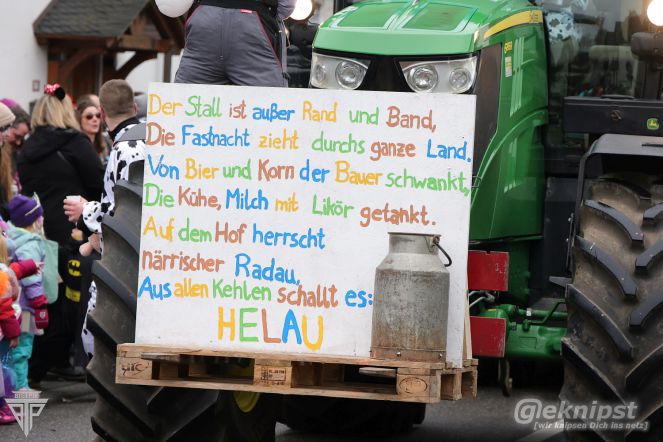 Der Stall ist außer Rand und Band,
Die Fastnacht zieht durchs ganze Land.
Von Bier und Korn der Bauer schwankt,
Die Kühe, Milch mit Likör getankt.
Auf dem Hof herrscht
närrischer Radau,
Aus allen Kehlen schallt es:
HELAU
@eknipst
[wir knipsen Dich ins netz]